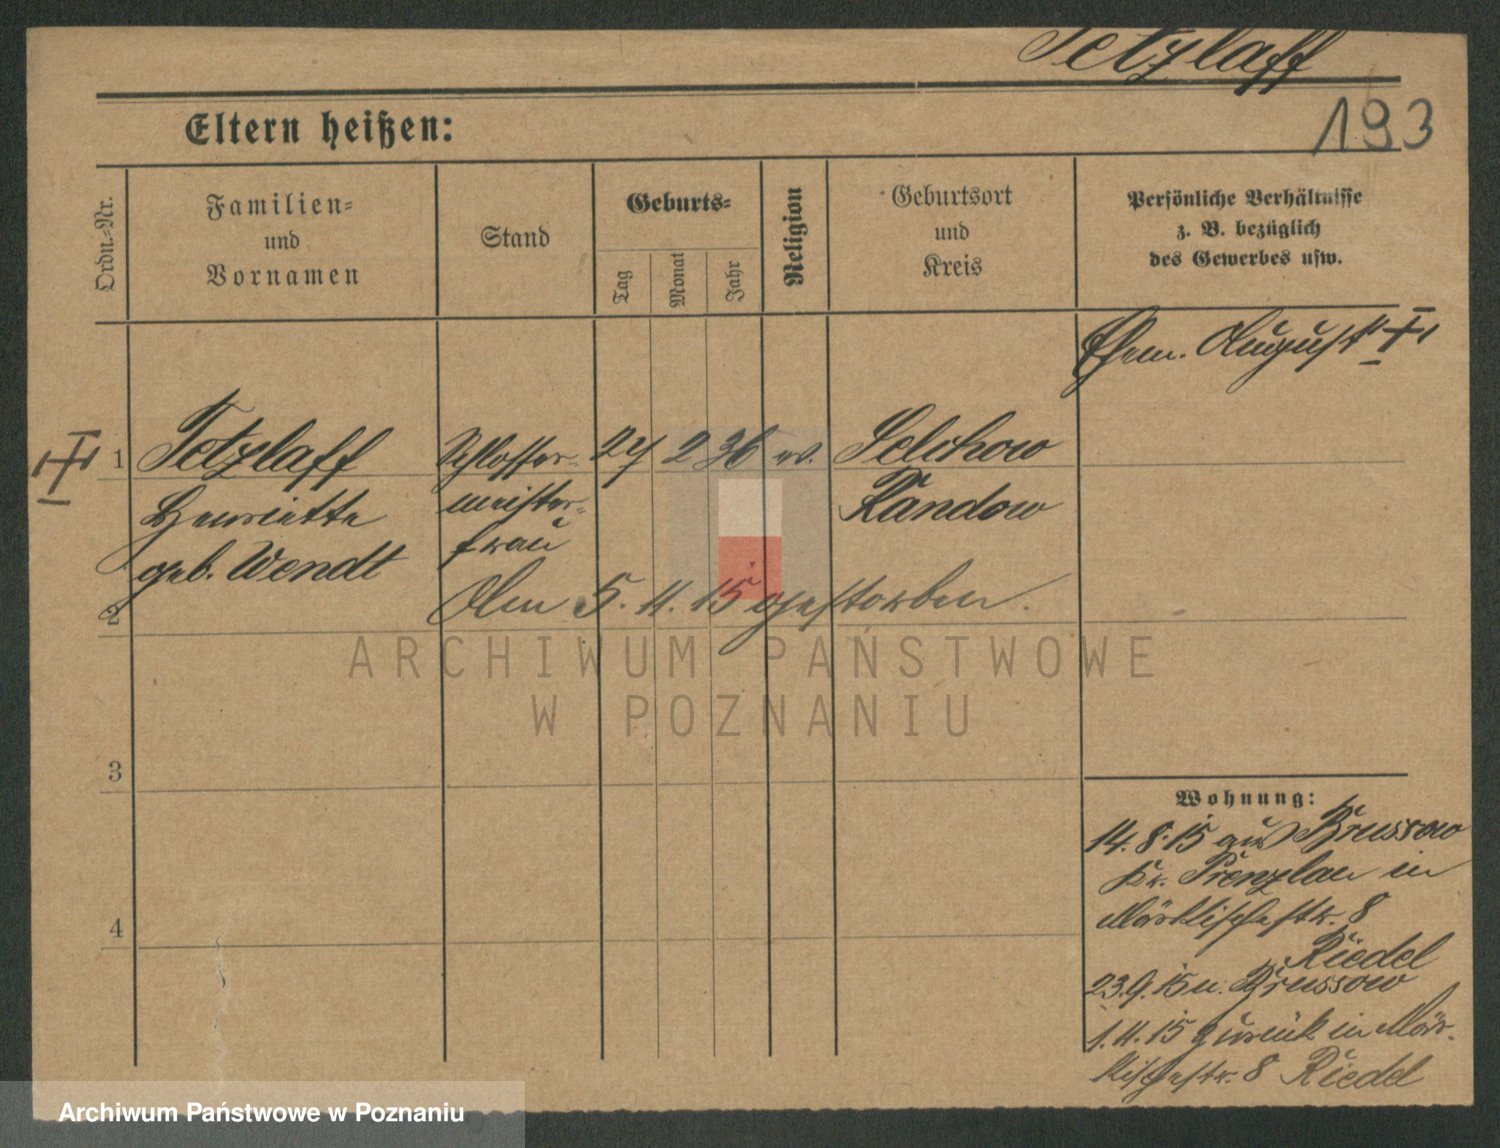 Tetzlaff
193
Eltern heißen:
Ordn.-Nr.
Familien-
und
Vornamen
Stand
Geburts-
Tag
Monat
Jahr
Religion
Geburtsort
und
Kreis
Persönliche Verhältnisse
z. B. bezüglich
des Gewerbes usw.
Ehem. August †
1 Tetzlaff Schlosser- 27 2 36 ev. Selchow
Henriette meister- Randow
geb. Wendt frau
2 Am 5. 11. 15 gestorben.
3
4
Wohnung:
14. 8. 15 aus Brüssow
Kr. Prenzlau in
Märkischestr. 8
Riedel
23.9.15 n. Brüssow
1. 11. 15 zurück in Mär-
kischestr. 8 Riedel
ARCHIWUM PAŃSTWOWE
W POZNANIU
Archiwum Państwowe w Poznaniu